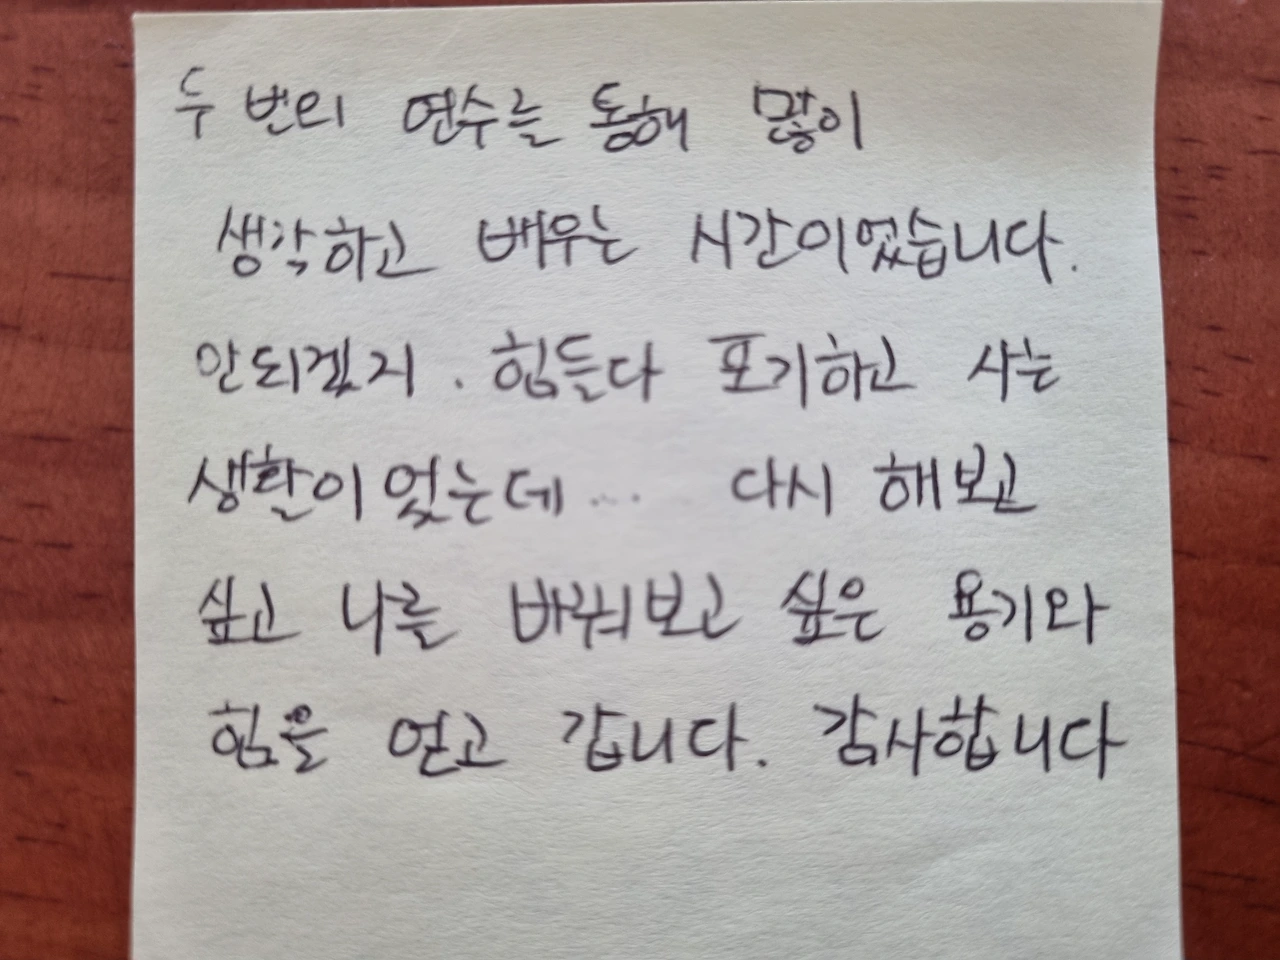 두 번의 연수를 통해 많이
생각하고 배우는 시간이었습니다.
안되겠지. 힘든다 포기하고 사는
생활이었는데... 다시 해보고
싶고 나를 바꿔보고 싶은 용기와
힘을 얻고 갑니다. 감사합니다